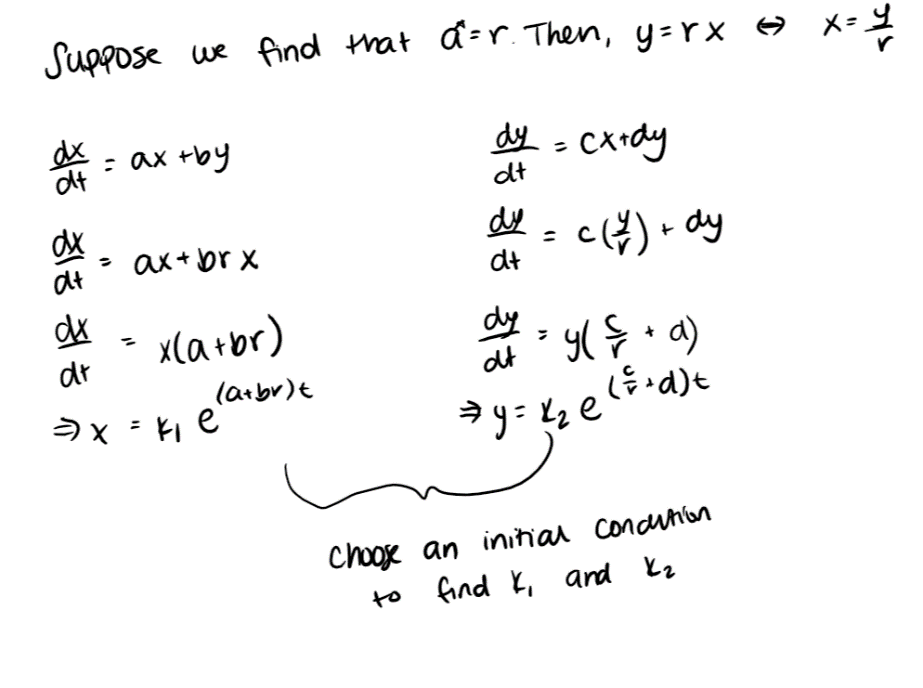 Suppose we find that a⃗=r. Then, y=rx ⇔ x=y/r
dx/dt = ax+by
dx/dt = ax+brx
dx/dt = x(a+br)
⇒ x = k₁e^((a+br)t)
dy/dt = cx+dy
dy/dt = c(y/r)+dy
dy/dt = y(c/r + d)
⇒ y = k₂e^((c/r+d)t)
choose an initial condition
to find k₁ and k₂